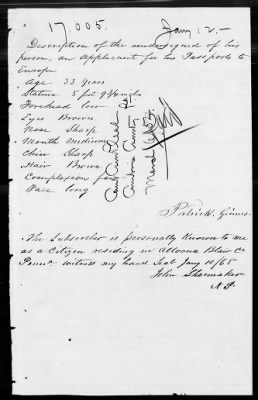 17.005.
Jany 12.-
Description of the undersigned of his
person, an Applicant for his Passports to
Europe
Age 33 Years
Stature 5 feet 9 3/4 inchs
Forehead low
Eyes Brown
Nose Sharp
Mouth Medium
Chin Sharp
Hair Brown
Complexion fair
Face long
Patrick
The Subscriber is personally Known to me
as a Citizen residing in Altoona Blair Co
Penna. witness my hand & seal Jany 10/65
John Shoemaker